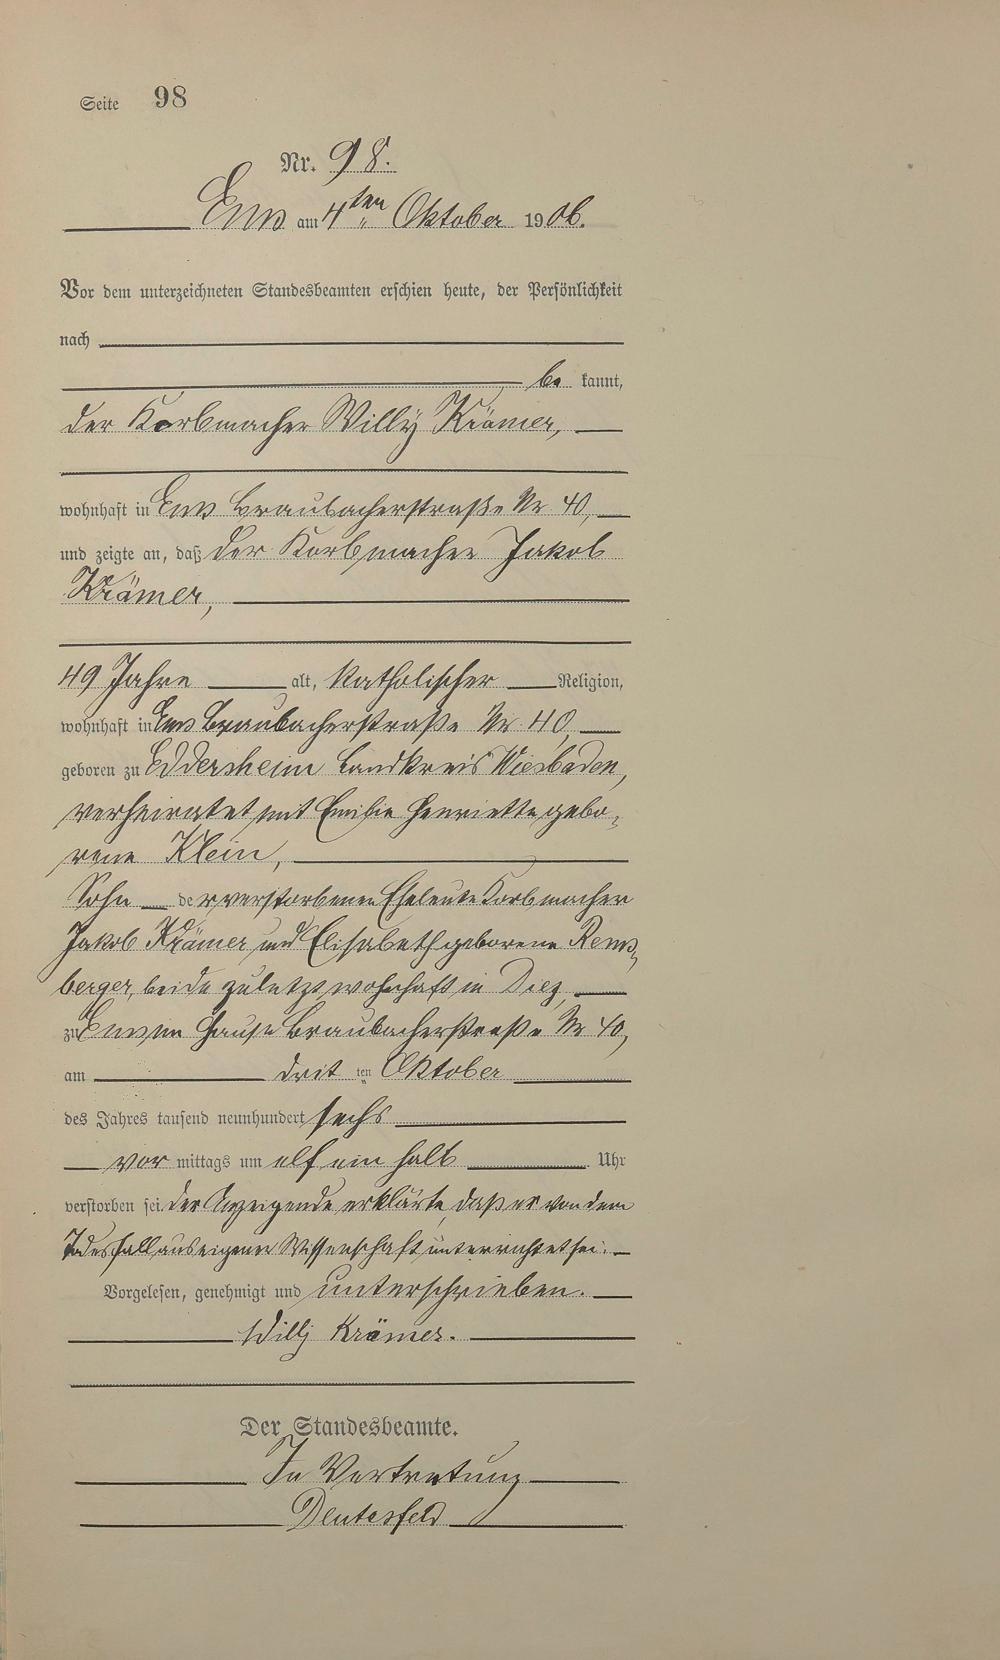 Seite 98
Nr. 98.
Ems am 4ten Oktober 1906.
Vor dem unterzeichneten Standesbeamten erschien heute, der Persönlichkeit
nach
be kannt,
der Korbmacher Willy Krämer,
wohnhaft in Ems Braubacherstraße Nr. 40,
und zeigte an, daß der Korbmacher Jakob
Krämer,
49 Jahre alt, katholischer Religion,
wohnhaft in Ems Braubacherstraße Nr. 40,
geboren zu Eddersheim Landkreis Wiesbaden,
verheiratet mit Emilie Henriette gebo-
rene Klein,
Sohn der verstorbenen Eheleute Korbmacher
Jakob Krämer und Elisabeth geborene Rems-
berger, beide zuletzt wohnhaft in Diez,
zu Ems im Hause Braubacherstraße Nr. 40,
am drit ten Oktober
des Jahres tausend neunhundert sechs
vor mittags um elf ein halb Uhr
verstorben sei. Der Anzeigende erklärte, daß er von dem
Todesfall aus eigener Wissenschaft unterrichtet sei.
Vorgelesen, genehmigt und unterschrieben.
Willy Krämer.
Der Standesbeamte.
In Vertretung
Deutesfeld